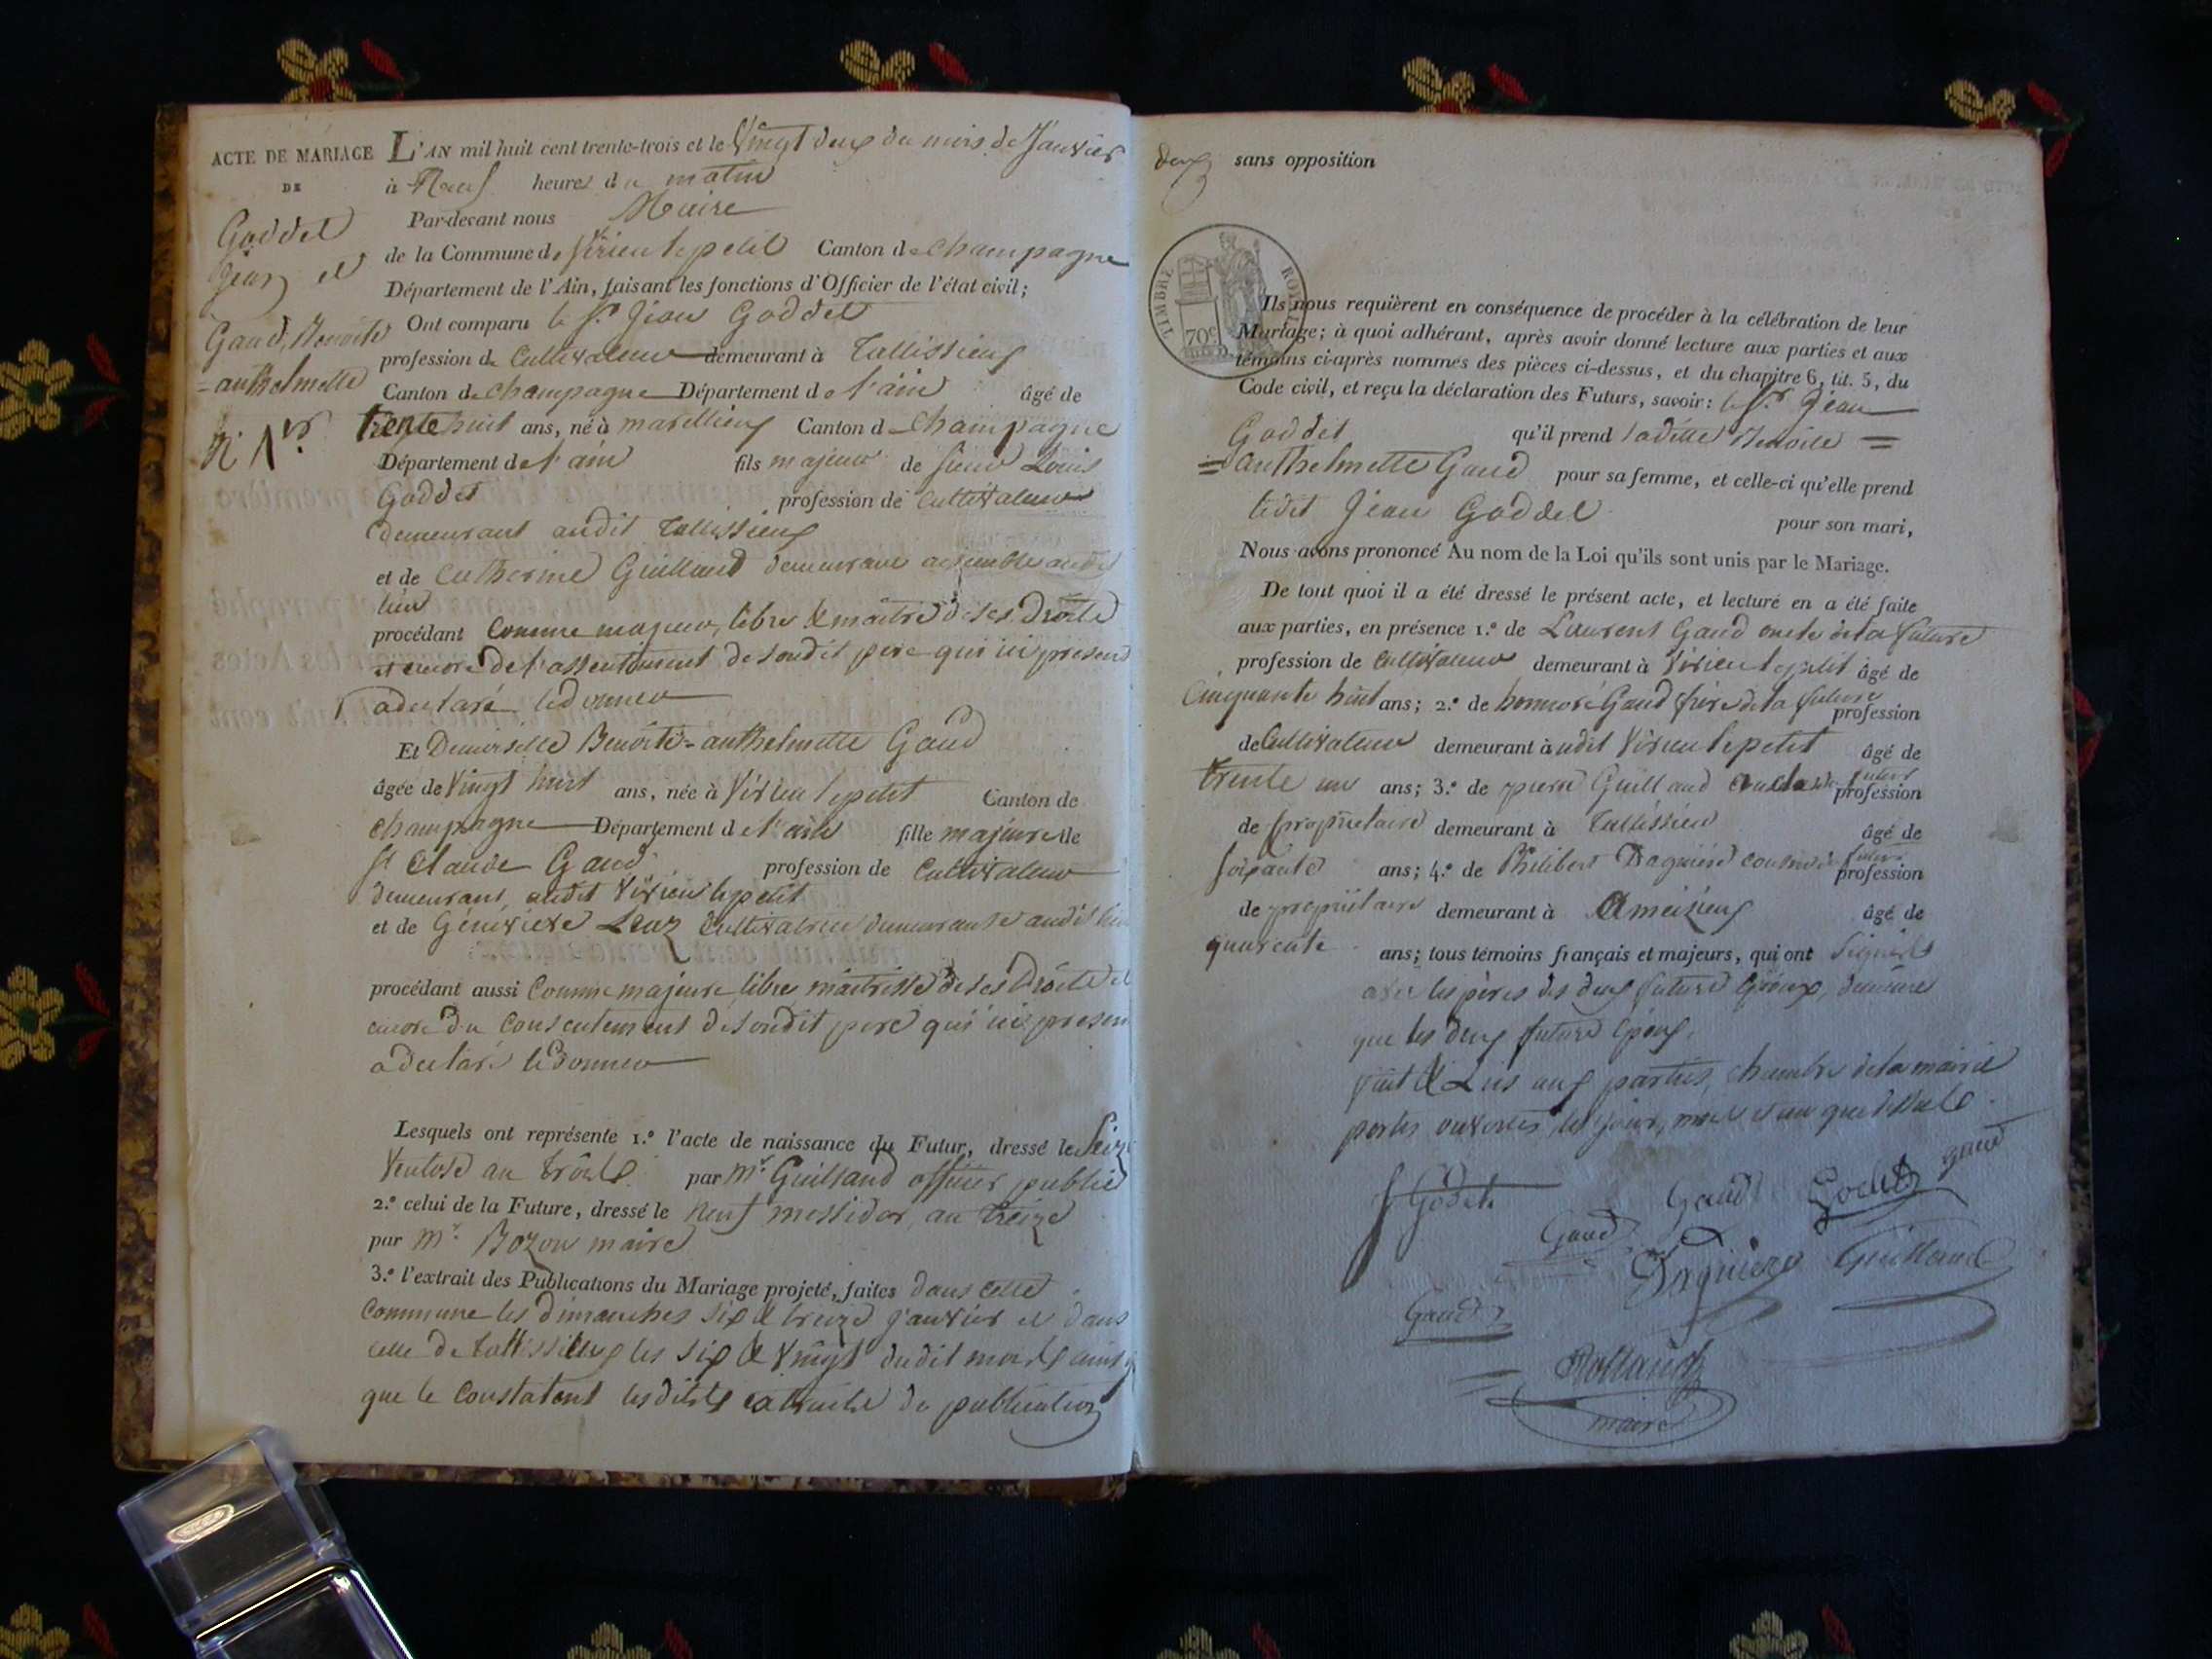 ACTE DE MARIAGE
DE
Goddet
Jean et
Gaud, Benoite
=anthelmette
N. 1er
L'AN mil huit cent trente-trois et le Vingt deux du mois de Janvier
à Neuf heures du matin
Par-devant nous Maire
de la Commune de Virieu le petit Canton de Champagne
Département de l'Ain, faisant les fonctions d'Officier de l'état civil;
Ont comparu le Sr Jean Goddet
profession de Cultivateur demeurant à Tallissieux
Canton de Champagne Département de l'ain âgé de
trente huit ans, né à marellieux Canton d Champagne
Département de l'ain fils majeur de sieur Louis
Goddet profession de Cultivateur
demeurant audit Tallissieux
et de Catherine Guilland demeurant ensemble audit
lieu
procédant comme majeur, libre & maitre de ses Droits
et encore de l'assentiment de sondit père qui ici présent
a déclaré le donner
Et Demoiselle Benoite=anthelmette Gaud
âgée de Vingt huit ans, née à Virieu le petit Canton de
Champagne Département de l'ain fille majeure de
Sr Claude Gaud profession de Cultivateur
demeurant audit Virieu le petit
et de Génevieve Leuz Cultivatrice demeurante audit lieu
procédant aussi Comme majeure, libre, maitresse de ses Droits et
encore du Consentement de sondit pere qui ici présent
a déclaré le donner
Lesquels ont représente 1.º l'acte de naissance du Futur, dressé le Seize
Ventose an trois par Mr. Guilland officier public
2.º celui de la Future, dressé le neuf messidor, an treize
par Mr. Bozon maire
3.º l'extrait des Publications du Mariage projeté, faites dans cette
Commune les dimanches six & treize janvier et dans
celle de tallissieux les six & vingt dudit mois ainsi
que le Constatent lesdits extraits de publication
deux sans opposition
TIMBRE ROYAL
70c
Ils nous requièrent en conséquence de procéder à la célébration de leur
Mariage; à quoi adhérant, après avoir donné lecture aux parties et aux
témoins ci-après nommés des pièces ci-dessus, et du chapitre 6, tit. 5, du
Code civil, et reçu la déclaration des Futurs, savoir: le Sr Jean
Goddet qu'il prend ladite Benoite =
=anthelmette Gaud pour sa femme, et celle-ci qu'elle prend
ledit Jean Goddet pour son mari,
Nous avons prononcé Au nom de la Loi qu'ils sont unis par le Mariage.
De tout quoi il a été dressé le présent acte, et lecture en a été faite
aux parties, en présence 1.º de Laurent Gaud oncle de la future
profession de Cultivateur demeurant à Virieu le petit âgé de
Cinquante huit ans; 2.º de honnoré Gaud frère de la future profession
de Cultivateur demeurant à udit Virieu le petit âgé de
trente un ans; 3.º de pierre Guilland oncle du futur profession
de propriétaire demeurant à Tallissieu âgé de
soixante ans; 4.º de Philibert Daguière cousin du futur profession
de propriétaire demeurant à Ameizieux âgé de
quarente ans; tous témoins français et majeurs, qui ont signés
avec les pères des deux futurs Epoux, de même
que les deux future Epoux.
fait & Lus aux parties, Chambre de la mairie
portes ouvertes les jour, mois et an que dessus.
J Godet
Gaud
Godet
gaud
Gaud
Daguiere
Guilland
Gaud
Rolland
maire